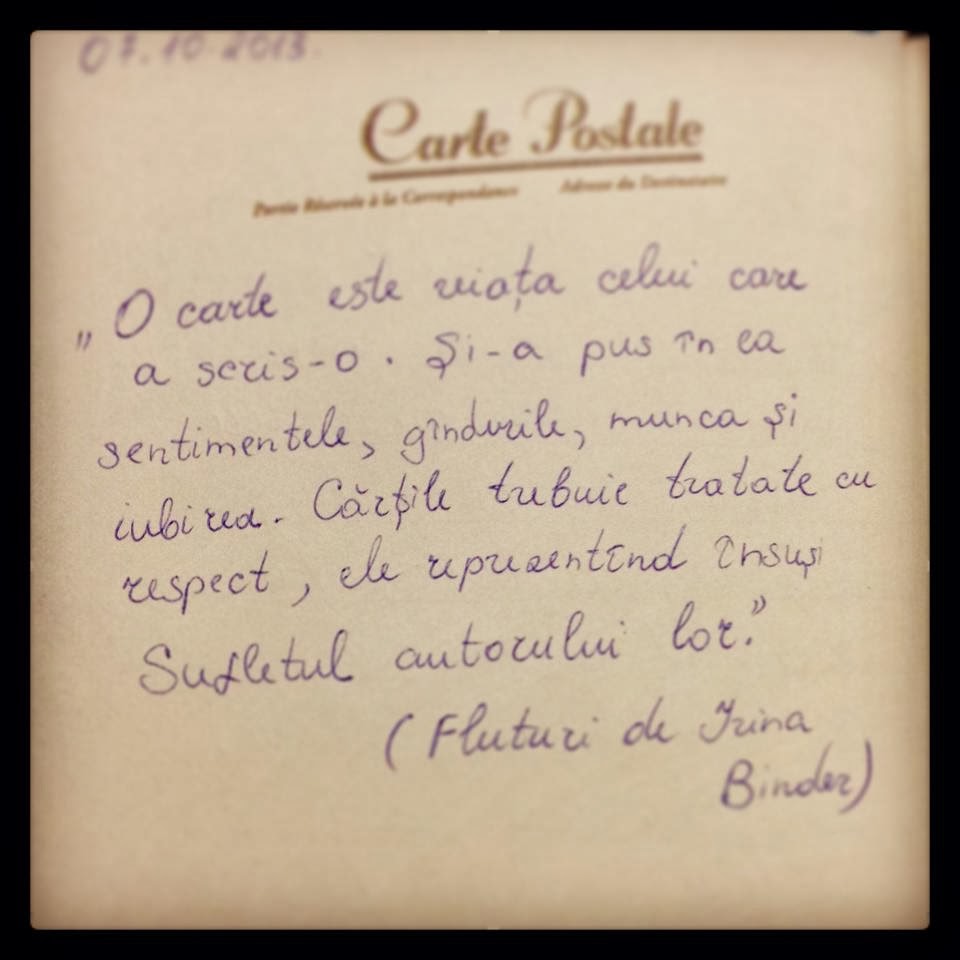 07.10.2013.
Carte Postale
Partie Réservée à la Correspondance Adresse du Destinataire
„O carte este viața celui care
a scris-o. Și-a pus în ea
sentimentele, gîndurile, munca și
iubirea. Cărțile trebuie tratate cu
respect, ele reprezentînd însuși
Sufletul autorului lor.”
(Fluturi de Irina
Binder)